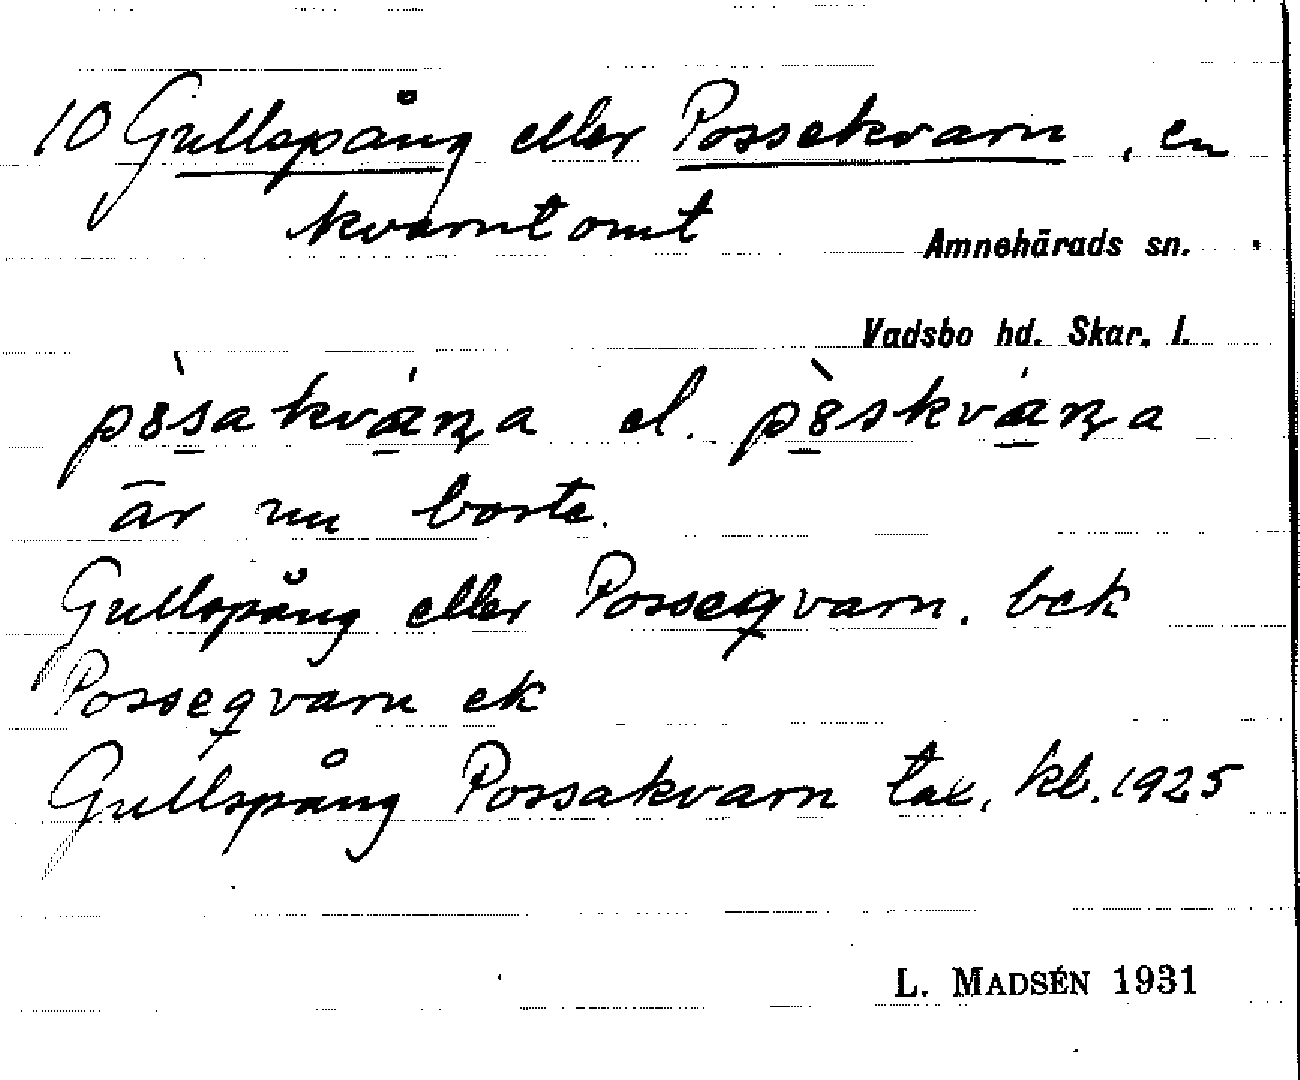 10 Gullspång eller Possekvarn, en
kvarntomt
Amnehärads sn.
Vadsbo hd. Skar. l.
är nu borta.
Gullspång eller Posseqvarn. bek
Posseqvarn ek
Gullspång Possakvarn tax. kb. 1925
L. MADSÉN 1931